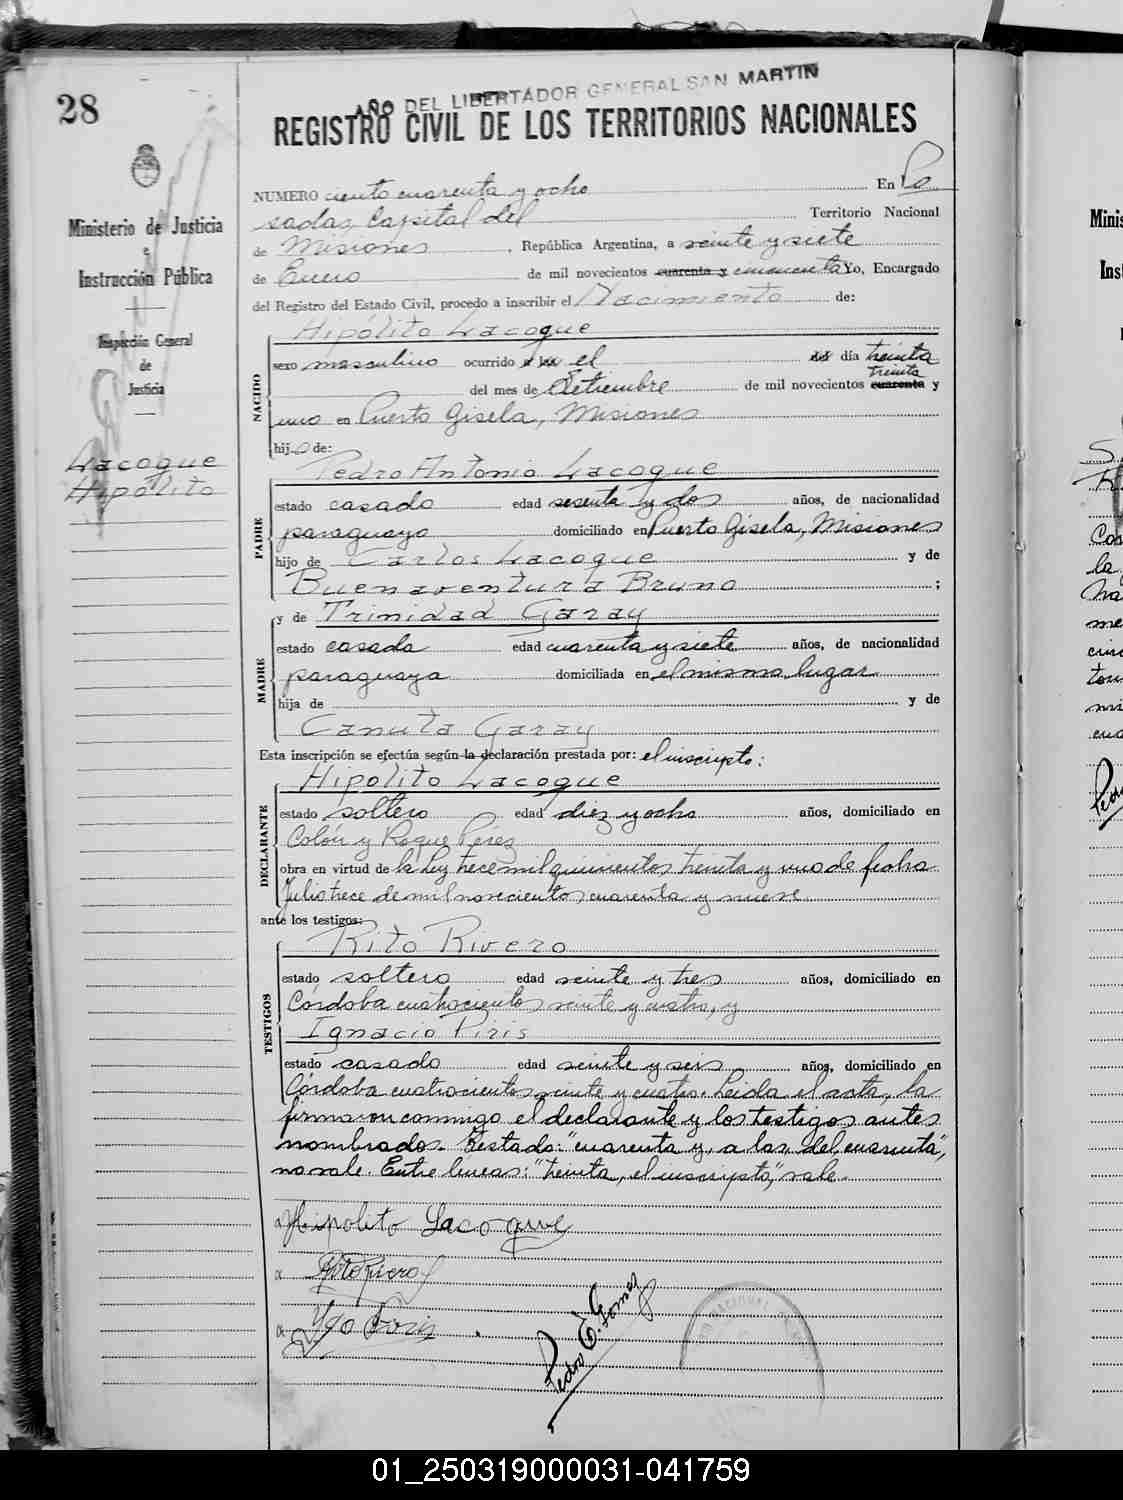 AÑO DEL LIBERTADOR GENERAL SAN MARTIN
28
REGISTRO CIVIL DE LOS TERRITORIOS NACIONALES
Ministerio de Justicia
e
Instrucción Pública
Inspección General
de
Justicia
Lacoque
Hipólito
NUMERO ciento cuarenta y ocho En Po
sadas, Capital del Territorio Nacional
de Misiones, República Argentina, a veinte y siete
de Enero de mil novecientos cuarenta y cincuenta Yo, Encargado
del Registro del Estado Civil, procedo a inscribir el Nacimiento de:
NACIDO
Hipólito Lacoque
sexo masculino ocurrido a las el del día treinta
treinta
del mes de Setiembre de mil novecientos cuarenta y
uno en Puerto Gisela, Misiones
hijo de:
PADRE
Pedro Antonio Lacoque
estado casado edad sesenta y dos años, de nacionalidad
paraguayo domiciliado en Puerto Gisela, Misiones
hijo de Carlos Lacoque y de
Buenaventura Bruno ;
MADRE
y de Trinidad Garay
estado casada edad cuarenta y siete años, de nacionalidad
paraguaya domiciliada en el mismo lugar
hija de y de
Canuta Garay
Esta inscripción se efectúa según la declaración prestada por: el inscripto:
DECLARANTE
Hipólito Lacoque
estado soltero edad diez y ocho años, domiciliado en
Colón y Roque Pérez
obra en virtud de la ley trece mil quinientos treinta y uno de fecha
Julio trece de mil novecientos cuarenta y nueve
ante los testigos:
TESTIGOS
Rito Rivero
estado soltero edad veinte y tres años, domiciliado en
Córdoba cuatrocientos veinte y cuatro, y
Ignacio Piris
estado casado edad veinte y seis años, domiciliado en
Córdoba cuatrocientos veinte y cuatro. Leida el acta, la
firmaron conmigo el declarante y los testigos antes
nombrados. Testado: "cuarenta y, a las, del, cuarenta",
no vale. Entre líneas: "treinta, el inscripto," vale.
Hipolito Lacoque
Rito Rivero
Ygo Piris
Pedro E. Gomez
Minis
Inst
Cos
la
me
mi
01_250319000031-041759